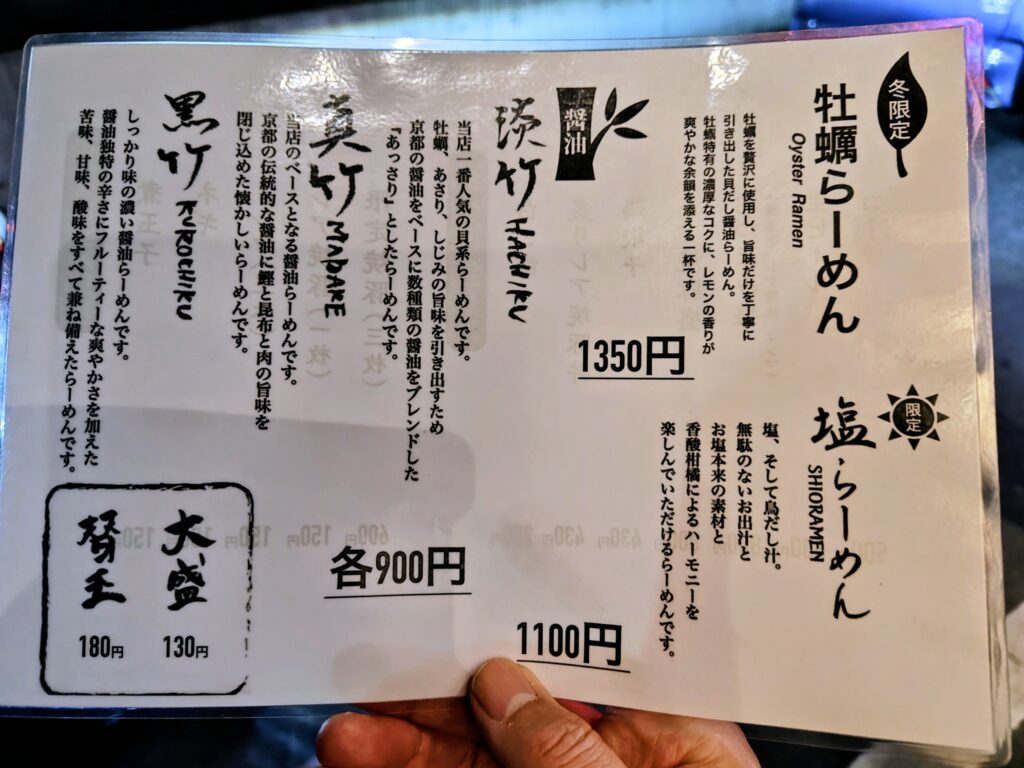 冬限定
牡蠣らーめん
Oyster Ramen
牡蠣を贅沢に使用し、旨味だけを丁寧に
引き出した貝だし醤油らーめん。
牡蠣特有の濃厚なコクに、レモンの香りが
爽やかな余韻を添える一杯です。
1350円
限定
塩らーめん
SHIORAMEN
塩、そして鳥だし汁。
無駄のないお出汁と
お塩本来の素材と
香酸柑橘によるハーモニーを
楽しんでいただけるらーめんです。
1100円
醤油
淡竹 HACHIKU
当店一番人気の貝系らーめんです。
牡蠣、あさり、しじみの旨味を引き出すため
京都の醤油をベースに数種類の醤油をブレンドした
『あっさり』としたらーめんです。
真竹 MADAKE
当店のベースとなる醤油らーめんです。
京都の伝統的な醤油に鰹と昆布と肉の旨味を
閉じ込めた懐かしいらーめんです。
黒竹 KUROCHIKU
しっかり味の濃い醤油らーめんです。
醤油独特の辛さにフルーティーな爽やかさを加えた
苦味、甘味、酸味をすべて兼ね備えたらーめんです。
各900円
大盛
130円
替玉
180円